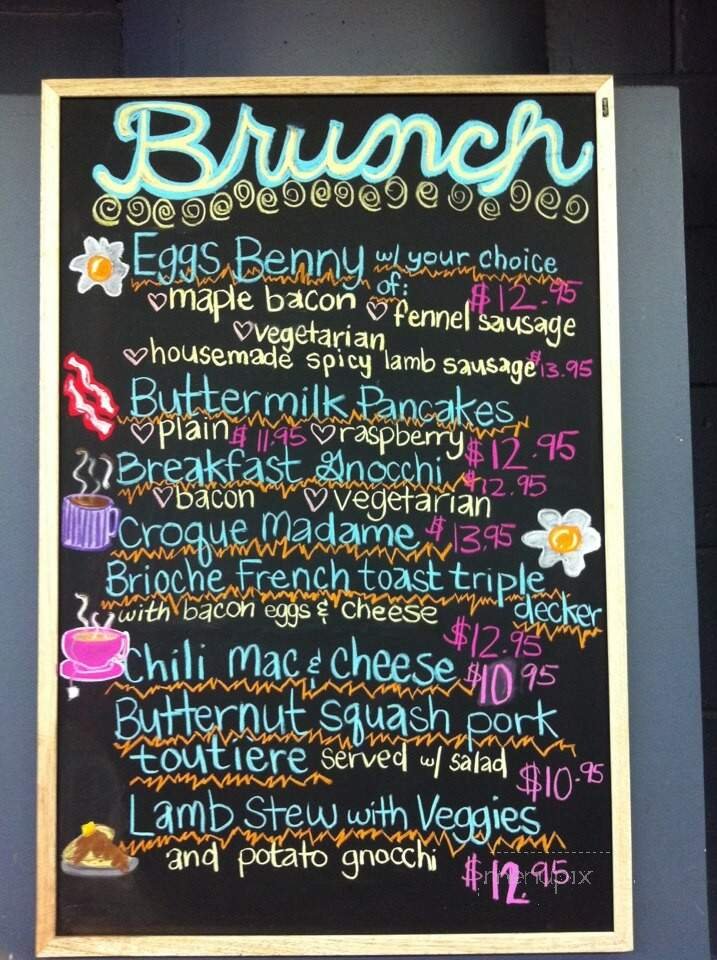 Brunch
Eggs Benny w/ your choice of:
$12.95
maple bacon
fennel sausage
vegetarian
housemade spicy lamb sausage $13.95
Buttermilk Pancakes
plain $11.95 raspberry $12.95
Breakfast Gnocchi $12.95
bacon vegetarian
Croque Madame $13.95
Brioche French toast triple decker
with bacon eggs & cheese
$12.95
Chili Mac & Cheese $10.95
Butternut Squash pork
toutiere served w/ salad $10.95
Lamb Stew with Veggies
and potato gnocchi $12.95
menupix